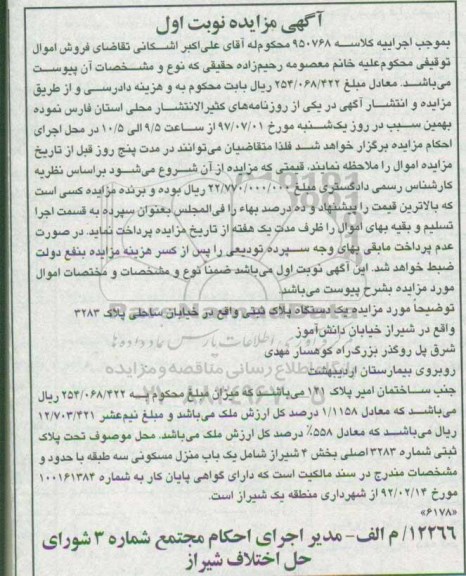 آگهی مزایده نوبت اول
بموجب اجراییه کلاسه ۹۵۰۷۶۸ محکوم‌له آقای علی‌اکبر اشکانی تقاضای فروش اموال
توقیفی محکوم‌علیه خانم معصومه رحیم‌زاده حقیقی که نوع و مشخصات آن پیوست
می‌باشد. معادل مبلغ ۲۵۴/۰۶۸/۴۲۲ ریال بابت محکوم به و هزینه دادرسی و از طریق
مزایده و انتشار آگهی در یکی از روزنامه‌های کثیرالانتشار محلی استان فارس نموده
بهمین سبب در روز یک‌شنبه مورخ ۹۷/۰۷/۰۱ از ساعت ۹/۵ الی ۱۰/۵ در محل اجرای
احکام مزایده برگزار خواهد شد فلذا متقاضیان می‌توانند در مدت پنج روز قبل از تاریخ
مزایده اموال را ملاحظه نمایند. قیمتی که مزایده از آن شروع می‌شود براساس نظریه
کارشناس رسمی دادگستری مبلغ ۲۲/۷۷۰/۰۰۰/۰۰۰ ریال بوده و برنده مزایده کسی است
که بالاترین قیمت را پیشنهاد و ده درصد بهاء را فی‌المجلس بعنوان سپرده به قسمت اجرا
تسلیم و بقیه بهای اموال را ظرف مدت یک هفته از تاریخ مزایده پرداخت نماید. در صورت
عدم پرداخت مابقی بهای وجه سپرده تودیعی را پس از کسر هزینه مزایده بنفع دولت
ضبط خواهد شد. این آگهی نوبت اول می‌باشد ضمنا نوع و مشخصات و مختصات اموال
مورد مزایده بشرح پیوست می‌باشد.
توضیحاً مورد مزایده یک دستگاه پلاک ثبتی واقع در خیابان ساحلی پلاک ۳۲۸۳
واقع در شیراز خیابان دانش‌آموز
شرق پل روگذر بزرگراه کوهسار مهدی
روبروی بیمارستان اردیبهشت
جنب ساختمان امیر پلاک ۱۴۱ می‌باشد که میزان مبلغ محکوم به ۲۵۴/۰۶۸/۴۲۲ ریال
می‌باشد که معادل ۱/۱۱۵۸ درصد کل ارزش ملک می‌باشد و مبلغ نیم‌عشر ۱۲/۷۰۳/۴۲۱
ریال می‌باشد که معادل ۵۵۸٪ درصد کل ارزش ملک می‌باشد. محل موصوف تحت پلاک
ثبتی شماره ۳۲۸۳ اصلی بخش ۴ شیراز شامل یک باب منزل مسکونی سه طبقه با حدود و
مشخصات مندرج در سند مالکیت است که دارای گواهی پایان کار به شماره ۱۰۰۱۶۱۳۸۴
مورخ ۹۲/۰۲/۱۴ از شهرداری منطقه یک شیراز است.
«۶۱۷۸»
۱۲۲۶۶/ م الف- مدیر اجرای احکام مجتمع شماره ۳ شورای
حل اختلاف شیراز